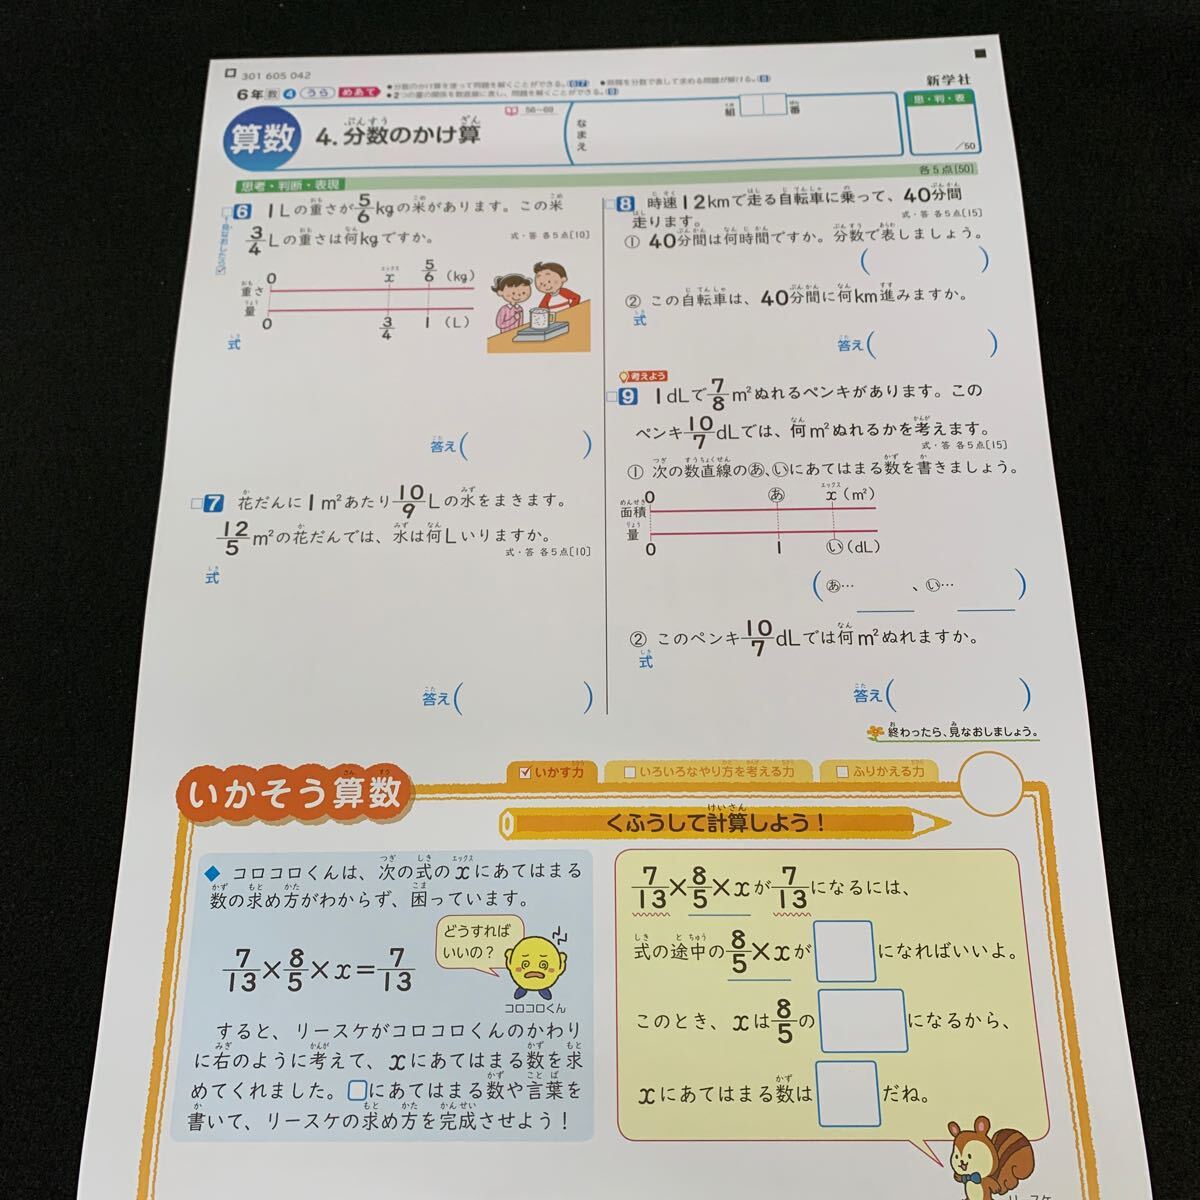 301 605 042
6年 教 4 うら めあて
●分数のかけ算を使って問題を解くことができる。(6)(7) ●時間を分数で表して求める問題が解ける。(8)
●2つの量の関係を数直線に表し、問題を解くことができる。(9)
新学社
算数 4.分数のかけ算
ぶんすう ざん
56~69
なまえ
組 番
思・判・表
/50
思考・判断・表現
各5点[50]
6 1Lの重さが5/6kgの米があります。この米
3/4Lの重さは何kgですか。
式・答 各5点[10]
0 x 5/6 (kg)
重さ
量
0 3/4 1 (L)
式
答え( )
7 花だんに1m²あたり10/9Lの水をまきます。
12/5m²の花だんでは、水は何Lいりますか。
式・答 各5点[10]
式
答え( )
8 時速12kmで走る自転車に乗って、40分間
走ります。
式・答 各5点[15]
① 40分間は何時間ですか。分数で表しましょう。
( )
② この自転車は、40分間に何km進みますか。
式
答え( )
考えよう
9 1dLで7/8m²ぬれるペンキがあります。この
ペンキ10/7dLでは、何m²ぬれるかを考えます。
式・答 各5点[15]
① 次の数直線のあ、いにあてはまる数を書きましょう。
0 あ x (m²)
面積
量
0 1 い (dL)
(あ… 、い… )
② このペンキ10/7dLでは何m²ぬれますか。
式
答え( )
終わったら、見なおしましょう。
いかそう算数
いかす力 いろいろなやり方を考える力 ふりかえる力
くふうして計算しよう!
◆ コロコロくんは、次の式のxにあてはまる
数の求め方がわからず、困っています。
7/13×8/5×x=7/13
どうすれば
いいの?
コロコロくん
すると、リースケがコロコロくんのかわり
に右のように考えて、xにあてはまる数を求
めてくれました。□にあてはまる数や言葉を
書いて、リースケの求め方を完成させよう!
7/13×8/5×xが7/13になるには、
式の途中の8/5×xが□になればいいよ。
このとき、xは8/5の□になるから、
xにあてはまる数は□だね。
リースケ